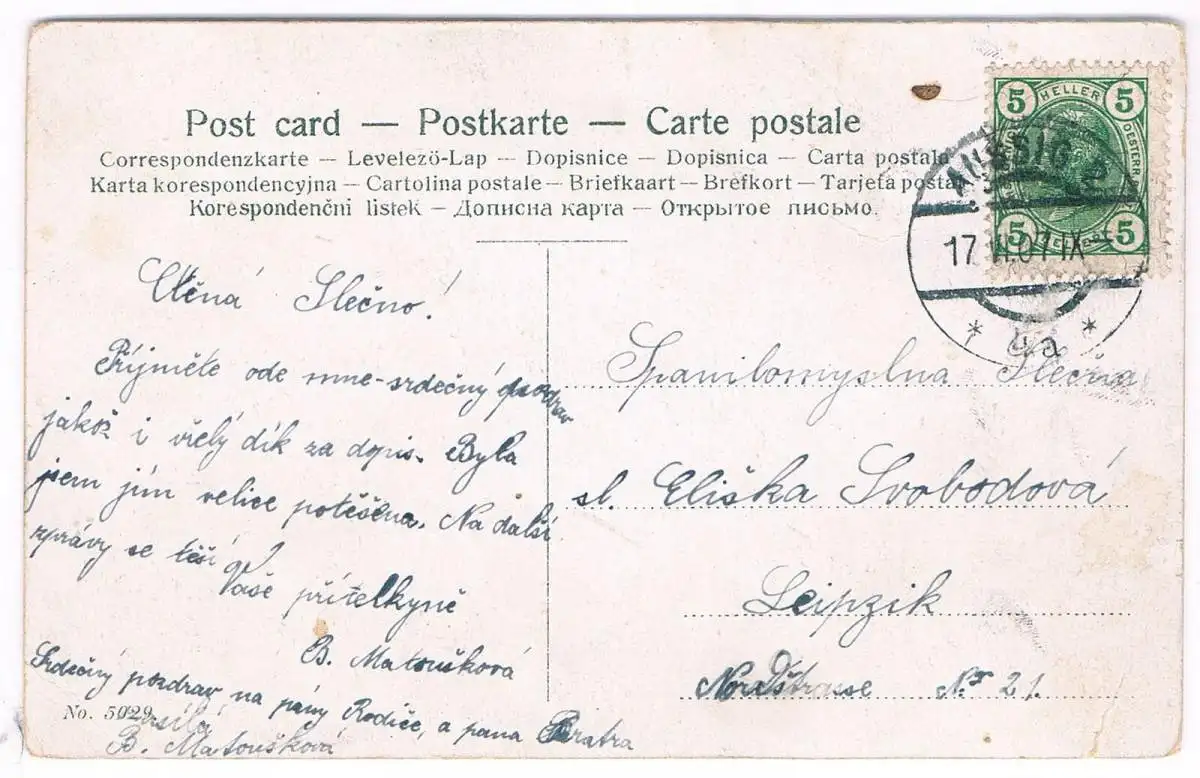 Post card — Postkarte — Carte postale
Correspondenzkarte — Levelezö-Lap — Dopisnice — Dopisnica — Carta postala
Karta korespondencyjna — Cartolina postale — Briefkaart — Brefkort — Tarjeta postal
Korespondenčni listek — Дописна карта — Открытое письмо
5 HELLER 5
OESTERR.
5 HELLER 5
AUSSIG 2
17. VI. 07 IX
Ctěná Slečno!
Příjměte ode mne srdečný pozdrav
jakož i vřelý dík za dopis. Byla
jsem jím velice potěšena. Na další
zprávy se těší
Vaše přítelkyně
B. Matoušková
Srdečný pozdrav na pány Rodiče, a pana Bratra
No. 5029
B. Matoušková
Spanilomyslna Slečna
sl. Eliška Svobodová
Leipzik
Nordstrasse No 21.